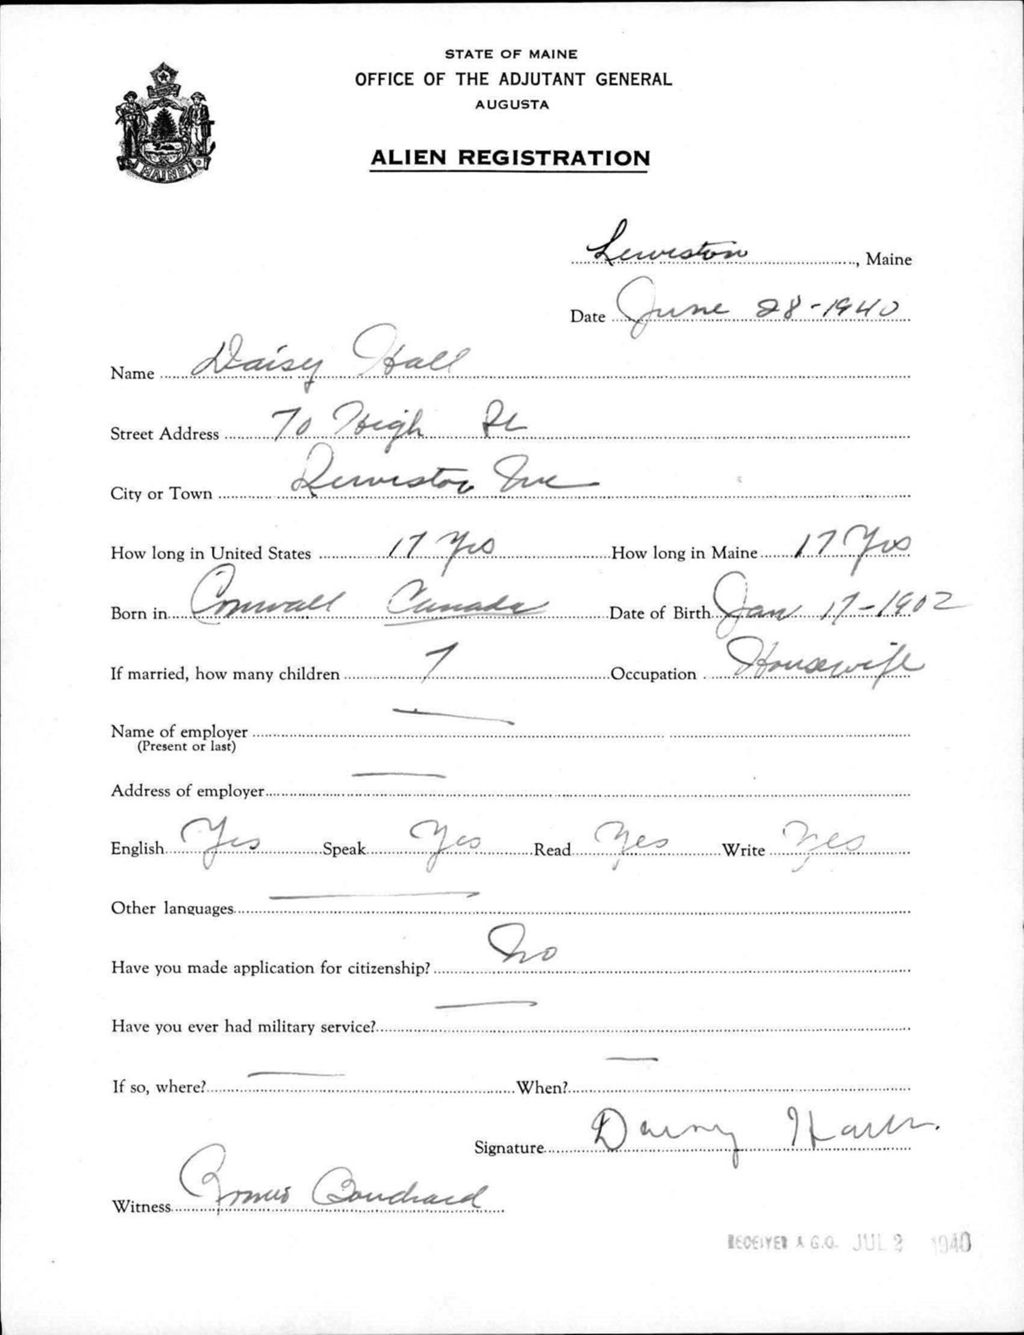 STATE OF MAINE
OFFICE OF THE ADJUTANT GENERAL
AUGUSTA
ALIEN REGISTRATION
MAINE
Lewiston, Maine
Date June 28-1940
Name Daisy Hall
Street Address 70 High St
City or Town Lewiston Me
How long in United States 17 Yrs How long in Maine 17 Yrs
Born in Cornwall Canada Date of Birth Jan 17-1902
If married, how many children 7 Occupation Housewife
Name of employer
(Present or last)
Address of employer
English Yes Speak Yes Read Yes Write Yes
Other languages
Have you made application for citizenship? No
Have you ever had military service?
If so, where? When?
Signature Daisy
Witness Bouchard
RECEIVED A.G.O. JUL 2 1940